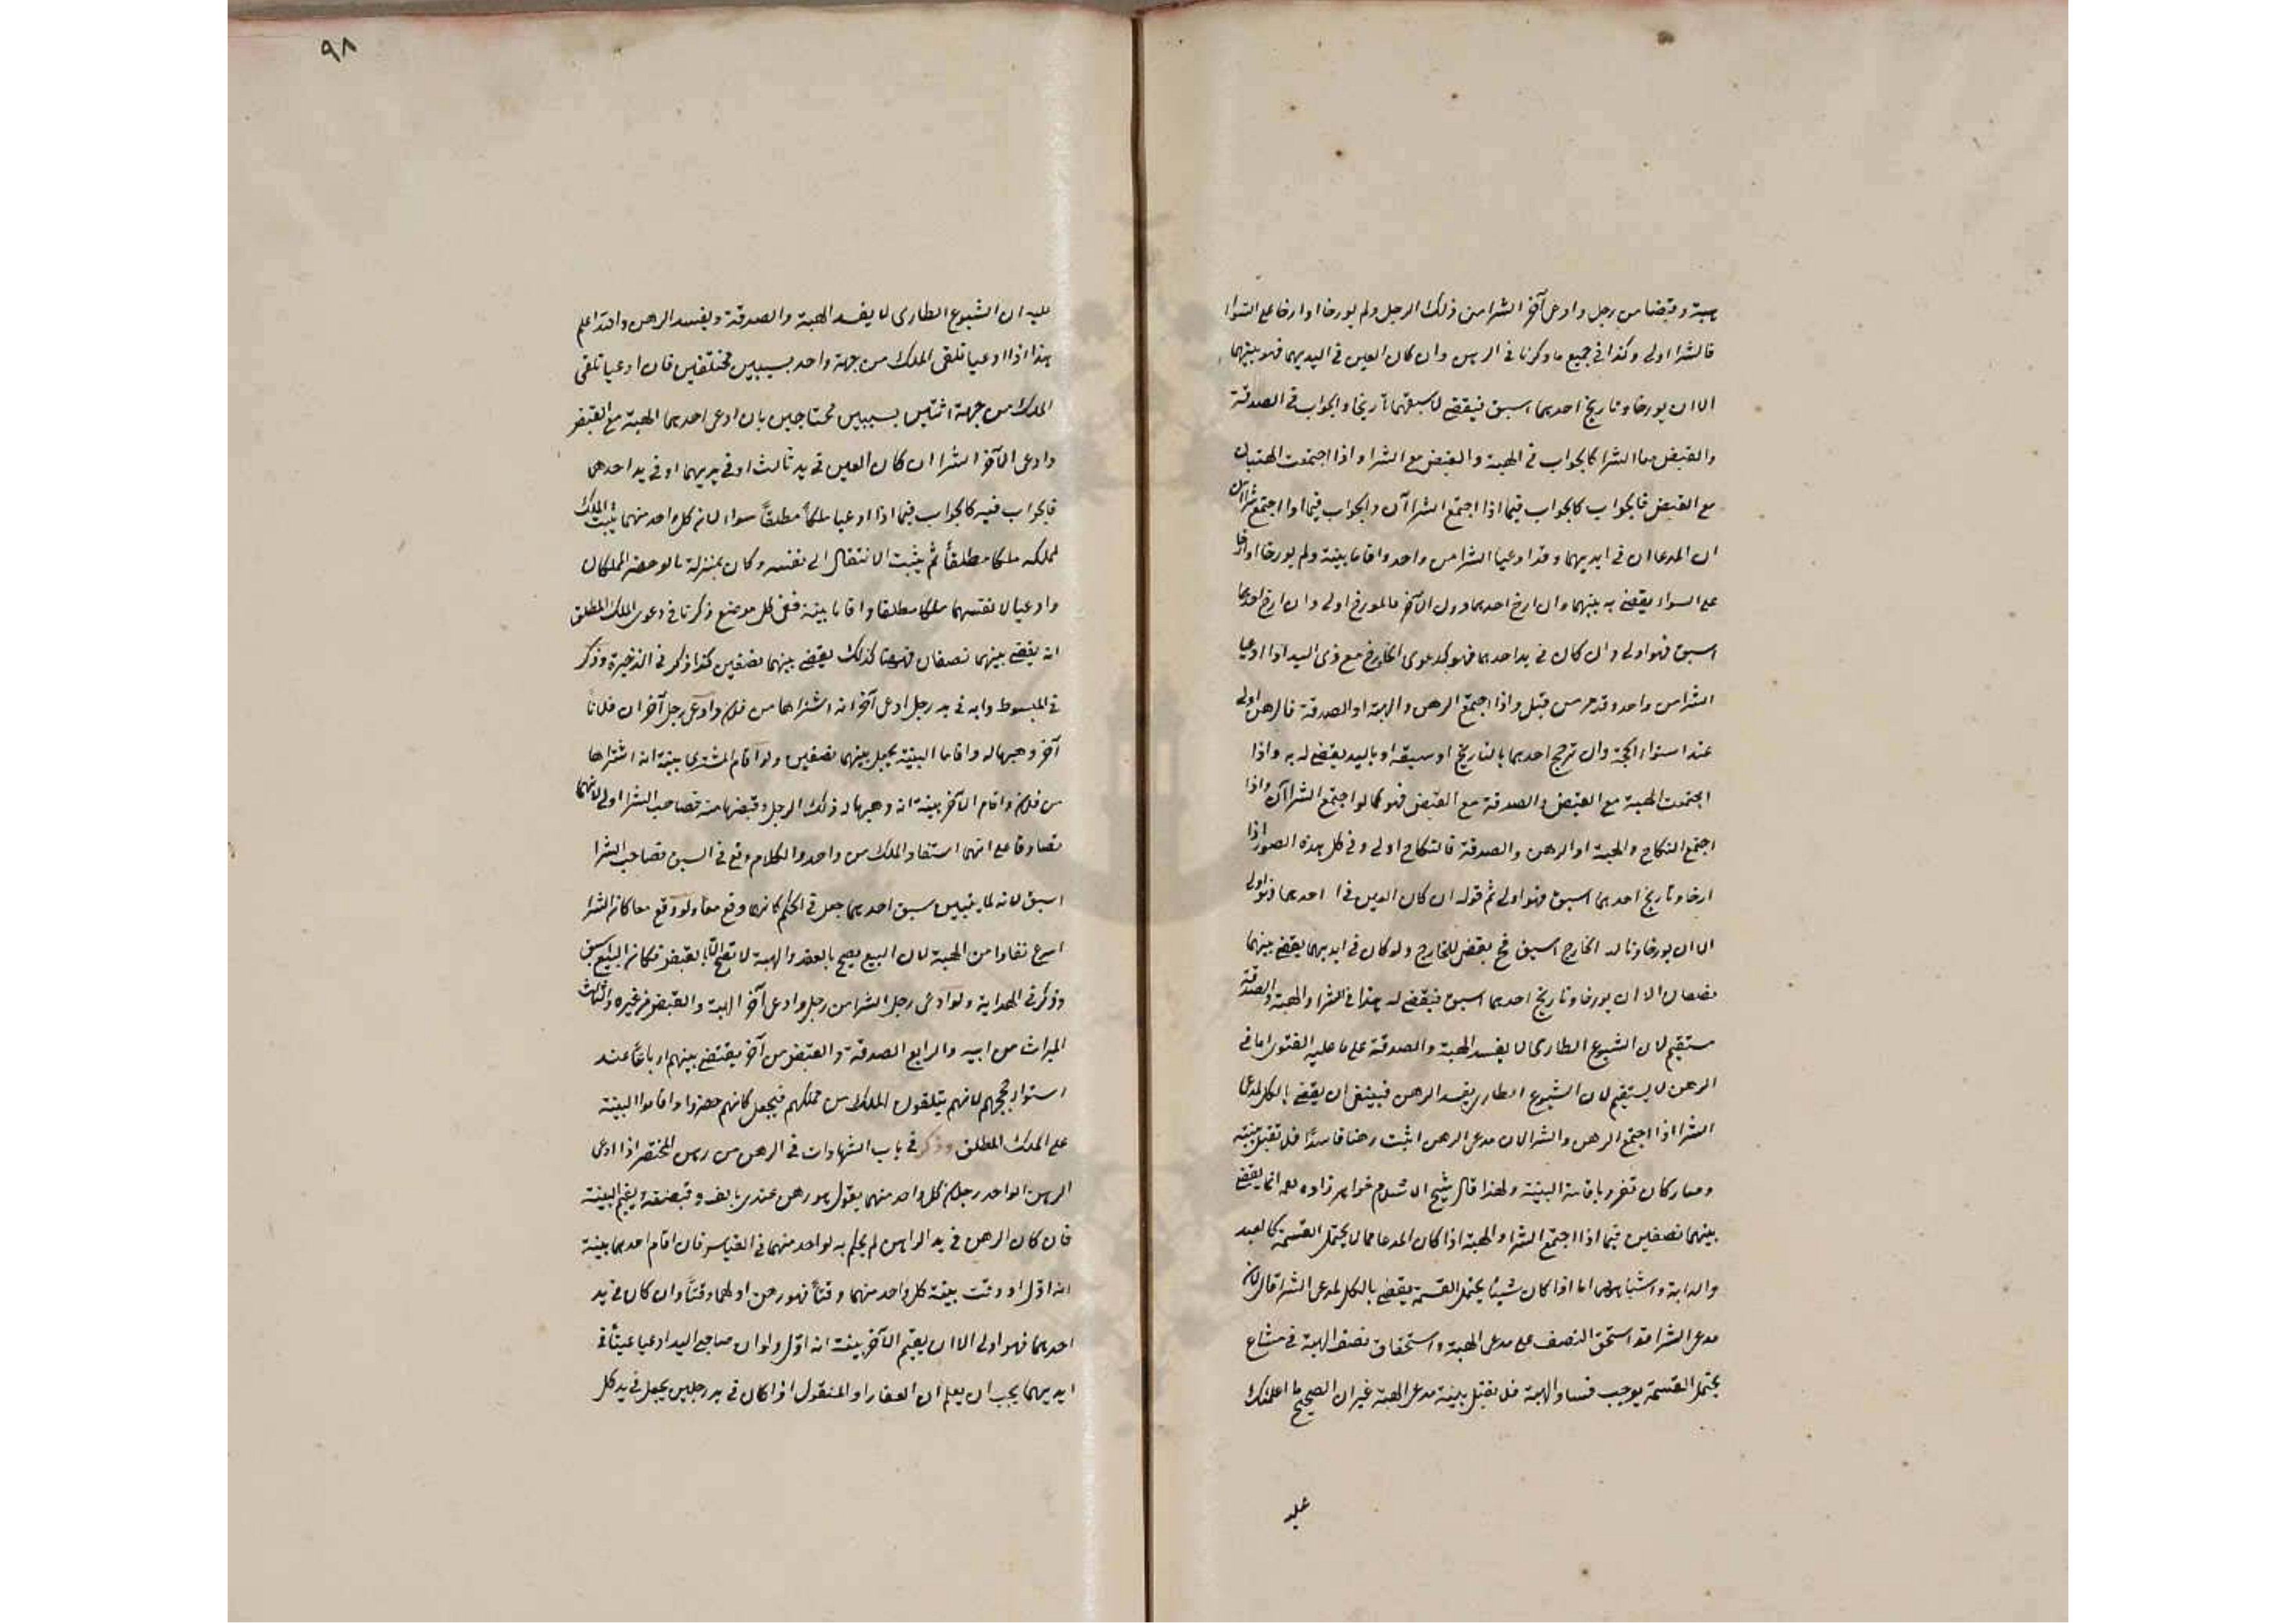 هبة وقبضا من رجل وادعى آخر الشرا من ذلك الرجل ولم يورخا او ارخا على السوا
فالشرا اولى وكذا في جميع ما ذكرنا في الرهن وان كان العين في ايديهما فهو بينهما
الا ان يورخا وتاريخ احديهما اسبق فيقضى لاسبقهما تاريخا والجواب في الصدقة
والقبض مع الشرا كالجواب في الهبة والقبض مع الشرا واذا اجتمعت الهبتان
مع القبض فالجواب كالجواب فيما اذا اجتمع الشراآن والجواب فيما اذا اجتمع شراآن
ان المدعا ان في ايديهما وقد ادعيا الشرا من واحد واقاما بينة ولم يورخا او ارخا
على السواء يقضى به بينهما وان ارخ احدهما دون الآخر فالمورخ اولى وان ارخ احدهما
اسبق فهو اولى وان كان في يد احدهما فهو كدعوى الخارج مع ذى اليد اذا ادعيا
الشرا من واحد وقد مر من قبل واذا اجتمع الرهن والهبة او الصدقة فالرهن اولى
عند استواء الحجة وان ترجح احدهما بالتاريخ او سبقه او باليد يقضى له به واذا
اجتمعت الهبة مع القبض والصدقة مع القبض فهو كما لو اجتمع الشراآن واذا
اجتمع النكاح والهبة او الرهن والصدقة فالنكاح اولى وفي كل هذه الصور اذا
ارخا وتاريخ احديهما اسبق فهو اولى ثم قوله ان كان العين في احديهما فهو اولى
الا ان يورخا وتا الخارج اسبق فح يقضى للخارج ولو كان في ايديهما يقضى بينهما
نصفان الا ان يورخا وتاريخ احديهما اسبق فيقضى له هذا في الشرا والهبة والصدقة
مستقيم لان الشيوع الطارى لا يفسد الهبة والصدقة على ما عليه الفتوى اما في
الرهن لا يستقيم لان الشيوع الطارى يفسد الرهن فينبغى ان يقضى بالكل لمدعى
الشرا اذا اجتمع الرهن والشرا لان مدعى الرهن اثبت رهنا فاسدا فلا تقبل بينته
وصار كان تفرد باقامة البينة ولهذا قال شيخ الاسلام خواهر زاده انما يقضى
بينهما نصفين فيما اذا اجتمع الشرا والهبة اذا كان المدعا مما لا يحتمل القسمة كالعبد
والدابة واشباههما اما اذا كان شيئا يحتمل القسمة يقضى بالكل لمدعى الشرا قال لان
مدعى الشرا قد استحق النصف على مدعى الهبة واستحقاق نصف الهبة في مشاع
يحتمل القسمة يوجب فساد الهبة فلا تقبل بينة مدعى الهبة غير ان الصحيح ما اعلمتك
عليه
٩٨
عليه ان الشيوع الطارى لا يفسد الهبة والصدقة ويفسد الرهن والله اعلم
هذا اذا ادعيا تلقى الملك من جهة واحد بسببين مختلفين فان ادعيا تلقى
الملك من جهة اثنين بسببين محتاجين بان ادعى احدهما الهبة مع القبض
وادعى الآخر الشرا ان كان العين في يد ثالث او في يديهما او في يد احدهما
فالجواب فيه كالجواب فيما اذا ادعيا ملكا مطلقا سواء لان كل واحد منهما يثبت الملك
لمملكه ملكا مطلقا ثم يثبت الانتقال الى نفسه وكان بمنزلة ما لو حضر المملكان
وادعيا لانفسهما ملكا مطلقا واقاما بينة ففى كل موضع ذكرنا في دعوى الملك المطلق
انه يقضى بينهما نصفان فههنا كذلك يقضى بينهما نصفين كذا ذكر في الذخيرة وذكر
في المبسوط دابه في يد رجل ادعى آخر انه اشتراها من فلان وادعى رجل آخر ان فلانا
آخر وهبها له واقاما البينة يجعل بينهما نصفين ولو اقام المشترى بينة انه اشتراها
من فلان واقام الآخر بينة انه وهبها له ذلك الرجل وقبضها منه فصاحب الشرا اولى لانهما
تصادقا على انهما استفادا الملك من واحد والكلام وقع في السبق فصاحب الشرا
اسبق لانه لما لم يتبين سبق احديهما جعل في الحكم كانهما وقع معا ولو وقع معا كان الشرا
اسرع نفاذا من الهبة لان البيع يصح بالعقد والهبة لا تصح الا بالقبض فكان البيع اسبق
وذكر في الهداية ولو ادعى رجل الشرا من رجل وادعى آخر الهبة والقبض من غيره والثالث
الميراث من ابيه والرابع الصدقة والقبض من آخر يقتضى بينهم ارباعا عند
استواء حججهم لانهم يتلقون الملك من مملكهم فيجعل كانهم حضروا واقاموا البينة
على الملك المطلق وذكر في باب الشهادات في الرهن من رهن المختصر اذا ادعى
الرهن الواحد رجلان كل واحد منهما يقول هو رهن عندى بالف وقبضته يقيم البينة
فان كان الرهن في يد الراهن لم يحكم به لواحد منهما في القياس فان اقام احدهما بينة
انه اول او وقت بينة كل واحد منهما وقتا فهو رهن اولهما وقتا وان كان في يد
احدهما فهو اولى الا ان يقيم الآخر بينة انه اول ولو ان صاحبى اليد ادعيا عينا في
ايديهما يجب ان يعلم ان العقار او المنقول اذا كان في يد رجلين يجعل في يد كل